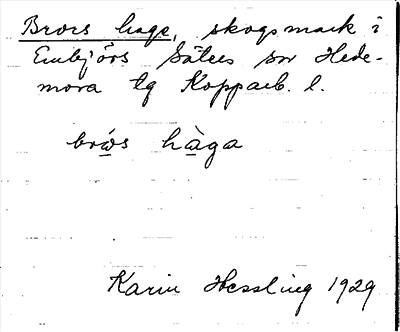 Brors hage, skogsmark i
Embjörs Säters sn Hede-
mora tg Kopparb. l.
brώs hàga
Karin Hessling 1929